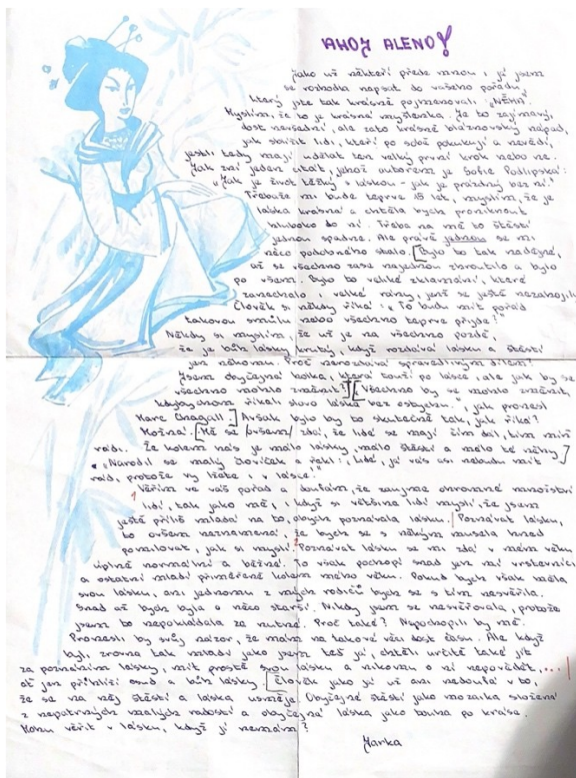 AHOJ ALENO!
Jako už někteří přede mnou, i já jsem
se rozhodla napsat do vašeho pořadu,
který jste tak krásně pojmenovali, "NĚHA".
Myslím, že to je krásná myšlenka. Je to zajímavý,
dost nevšední, ale zato krásně bláznovský nápad,
jak sblížit lidi, kteří po sobě pokukují a nevědí,
jestli tedy mají udělat ten velký první krok nebo ne.
Jak zní jeden citát, jehož autorem je Sofie Podlipská:
"Jak je život těžký s láskou - jak je prázdný bez ní."
Třebaže mi bude teprve 15 let, myslím, že je
láska krásná a chtěla bych proniknout
hluboko do ní. Třeba na mě to štěstí
jednou spadne. Ale právě jednou se mi
něco podobného stalo. [Bylo to tak nadějné,
až se všechno zase najednou zhroutilo a bylo
po všem. Bylo to veliké zklamání, které
zanechalo i veliké rány, jenž se ještě nezahojily.
Člověk si někdy říká: "To budu mít pořád
takovou smůlu nebo všechno teprve přijde?"
Někdy si myslím, že už je na všechno pozdě,
že je bůh lásky krutý, když rozdává lásku a štěstí
jen někomu. Proč nerozdává spravedlivým dílem?
Jsem obyčejná holka, která touží po lásce, ale jak by se
všechno mohlo změnit?] ["Všechno by se mohlo změnit,
kdybychom říkali slovo láska bez ostychu.", jak pronesl
Marc Chagall.] Avšak bylo by to skutečně tak, jak říká?
Možná. [Má se (ovšem) zdá, že lidé se mají čím dál, tím míň
rádi. Že kolem nás je málo lásky, málo štěstí a málo té něhy.]
"Narodil se malý človíček a řekl: "Lidé, já vás asi nebudu mít
rád, protože vy lžete i v lásce."
Věřím ve váš pořad a doufám, že zaujme ohromné množství
lidí, tak jako mě, i když si většina lidí myslí, že jsem
ještě příliš mladá na to, abych poznávala lásku. Poznávat lásku,
to ovšem neznamená, že bych se s někým musela hned
pomilovat, jak si myslí. Poznávat lásku se mi zdá v mém věku
úplně normální a běžné. To však pochopí snad jen mí vrstevníci
a ostatní mladí přiměřeně kolem mého věku. Pokud bych však měla
svou lásku, ani jednomu z mých rodičů bych se s tím nesvěřila.
Snad až bych byla o něco starší. Nikdy jsem se nesvěřovala, protože
jsem to nepokládala za nutné. Proč také? Nepochopili by mě.
Pronesli by svůj názor, že mám na takové věci dost času. Ale když
byli zrovna tak mladí jako jsem teď já, chtěli určitě také jít
za poznáním lásky, mít prostě svou lásku a nikomu o ní nepovědět,...
ať jen přiblíží osud a bůh lásky. [Člověk jako já už ani nedoufá v to,
že se na něj štěstí a láska usměje. Obyčejné štěstí jako mozaika složená
z nepatrných malých radostí a obyčejná láska jako touha po kráse.
Mohu věřit v lásku, když ji nemám?
Jarka